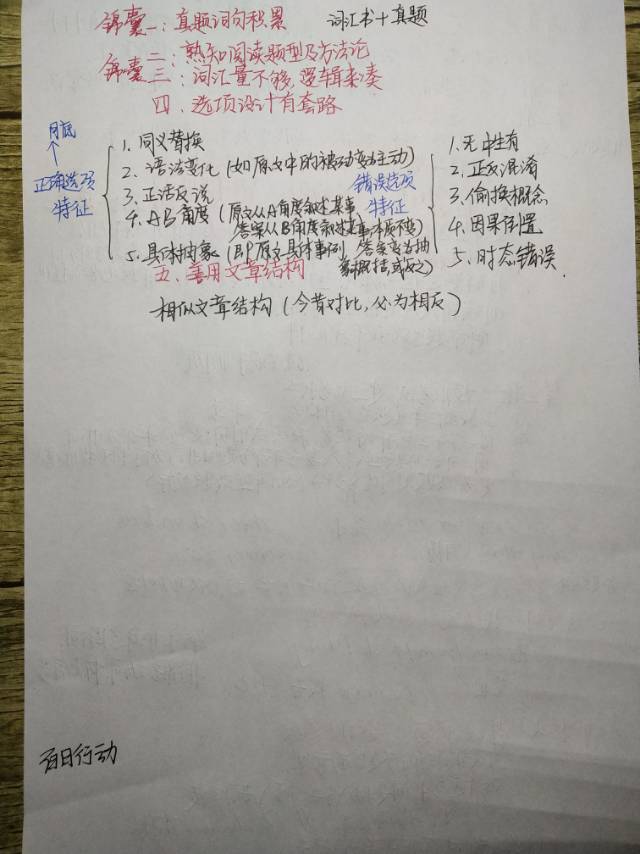 锦囊一：真题词句积累 词汇书+真题
二：熟知阅读题型及方法论
锦囊三：词汇量不够,逻辑来凑
四.选项设计有套路
月底
↑
正确选项
特征
1.同义替换
2.语法变化(如原文中的被动变主动)
3.正话反说
4.AB角度(原文从A角度叙述某事
答案从B角度叙述某事本质不变)
5.具体抽象(即原文具体事例 答案变为抽
象概括,或反之)
错误选项
特征
1.无中生有
2.正反混淆
3.偷换概念
4.因果倒置
5.时态错误.
五.善用文章结构
相似文章结构(今昔对比,必为相反)
百日行动